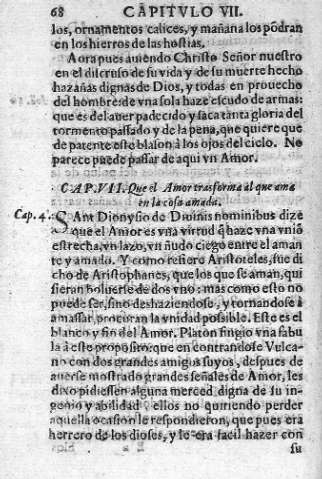 68 CAPITVLO VII.
los, ornamentos calices, y mañana los põdran
en los hierros de las hostias.
Aora pues auiendo Christo Señor nuestro
en el discurso de su vida y de su muerte hecho
hazañas dignas de Dios, y todas en prouecho
del hombre: de vna sola haze escudo de armas:
que es del auer padecido y saca tanta gloria del
tormento passado y de la pena, que quiere que
de patente este blason à los ojos del cielo. No
parece puede passar de aqui vn Amor.
CAP. VII. Que el Amor trasforma al que ama
en la cosa amada.
Cap. 4.
SAnt Dionysio de Diuinis nominibus dize
que el Amor es vna virtud q̃ haze vna vniõ
estrecha, vn lazo, vn ñudo ciego entre el aman
te y amado. Y como refiere Aristoteles, fue di
cho de Aristophanes, que los que se aman, qui
sieran boluerse de dos vno: mas como esto no
puede ser, sino deshaziendose, y tornandose à
amassar, procuran la vnidad possible. Este es el
blanco y fin del Amor. Platon fingio vna fabu
la à este proposito: que encontrandose Vulca-
no con dos grandes amigos suyos, despues de
auerse mostrado grandes señales de Amor, les
dixo pidiessen alguna merced digna de su in-
genio y abilidad, ellos no quiriendo perder
aquella ocasion le respondieron, que pues era
herrero de los dioses, y le era facil hazer con
su